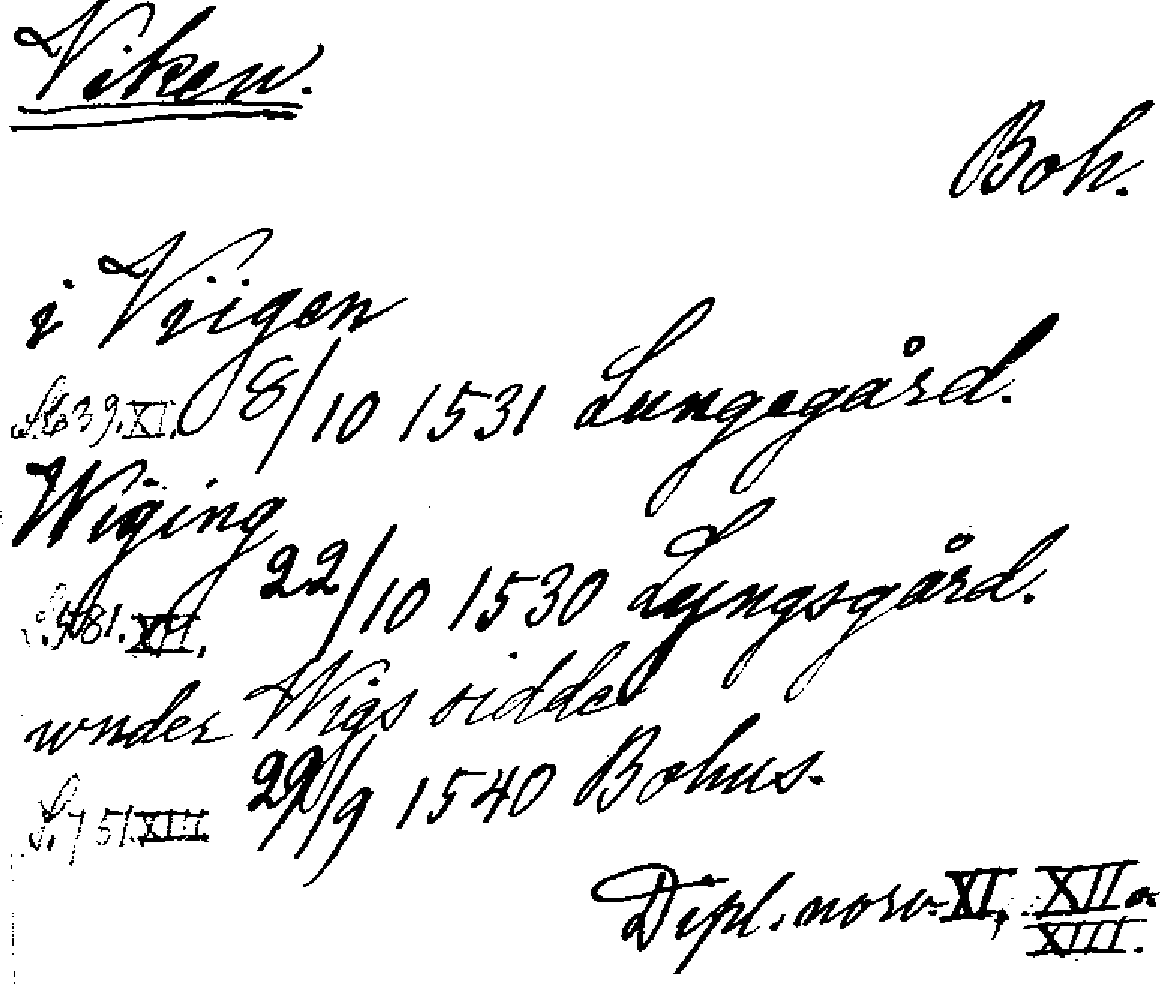 Viken.
Boh.
i Viigen
S. 639. XI. 8/10 1531 Lungegård.
Wiging
S. 581. XII. 22/10 1530 Lyngsgård.
wnder Wigs sidde
S. 751 XIII 29/9 1540 Bohus.
Dipl. norv. XI, XII o
XIII.